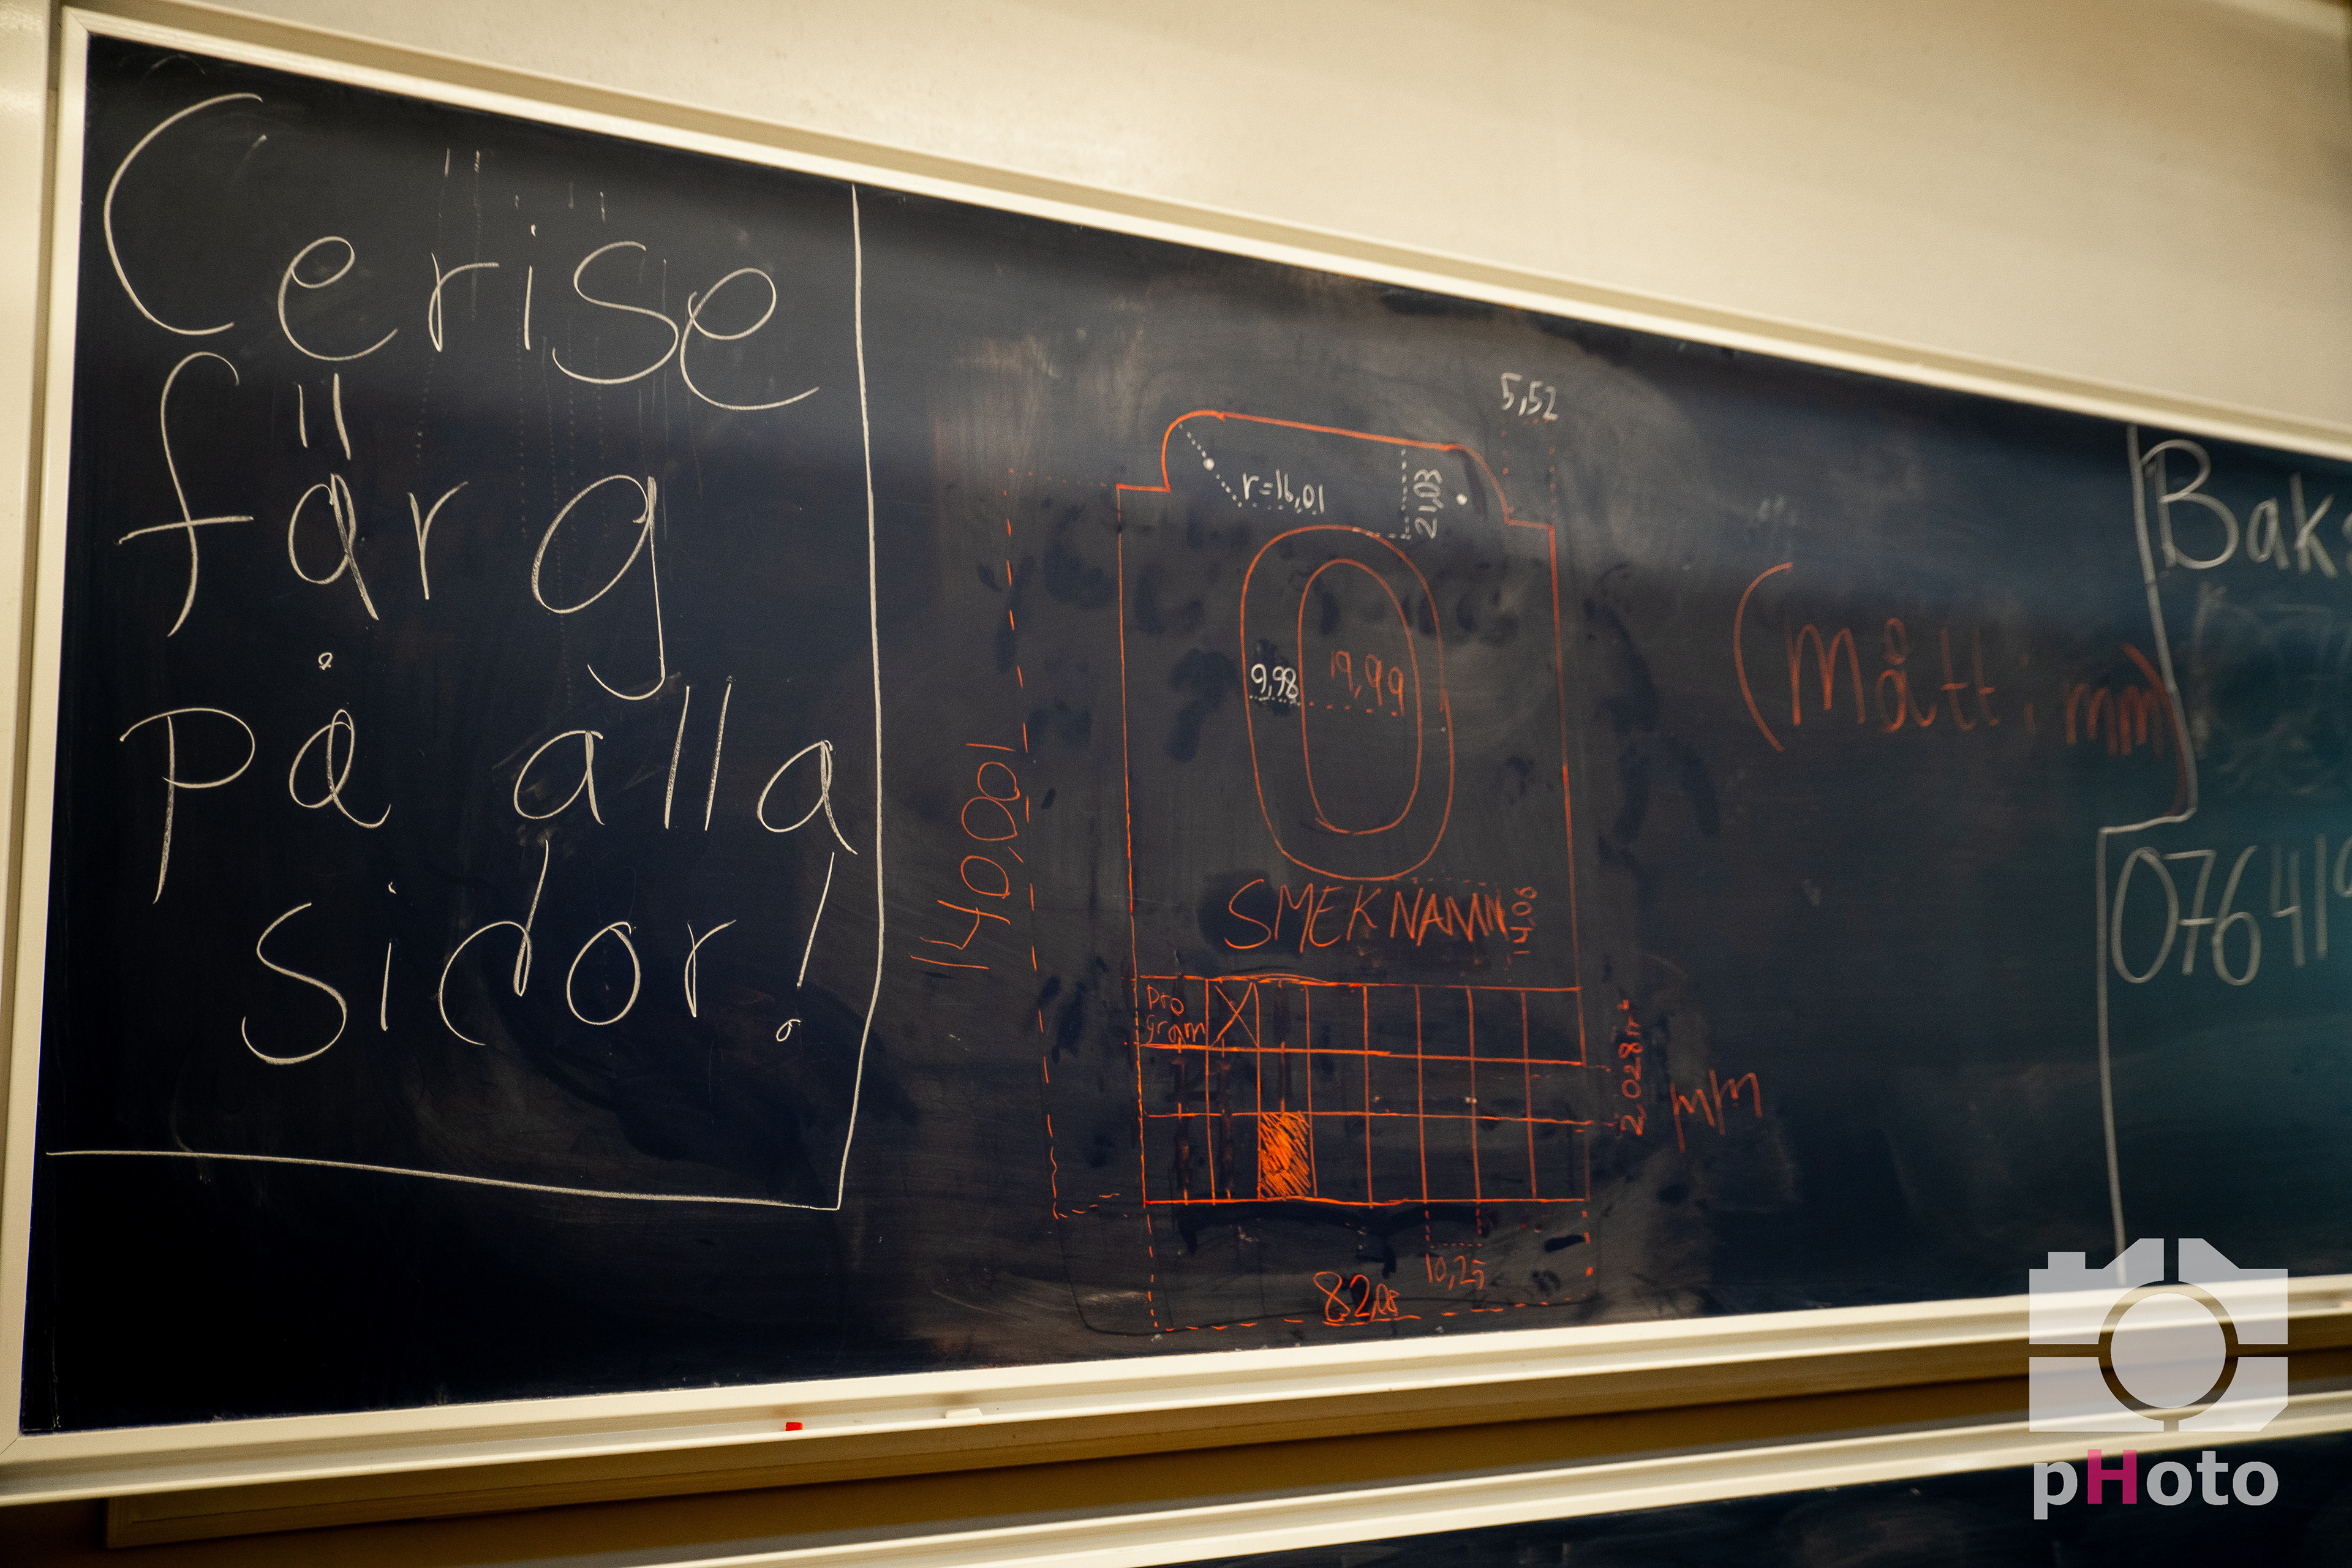 Cerise
färg
på alla
sidor!
5,52
r=16,01
21,03
9,98
19,99
140,001
SMEKNAMN
14,06
Pro
gram
X
mm
10,25
82,08
(Mått i mm)
Bak
076419
pHoto